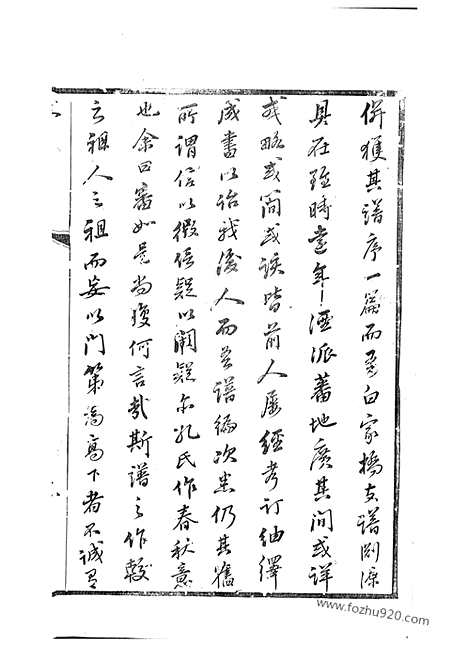 併獲其譜序一篇而吾白家橋支譜淵源
具在雖時遠年湮派蕃地廣其間或詳
或略或簡或誤皆前人屢經考訂紬繹
成書以詒我後人而吾譜編次悉仍其舊
所謂信以傳信疑以闕疑亦孔氏作春秋意
也余曰審如是尚復何言哉斯譜之作較
之祖人之祖而妄以門第為高下者不誠
www.fozhu920.com